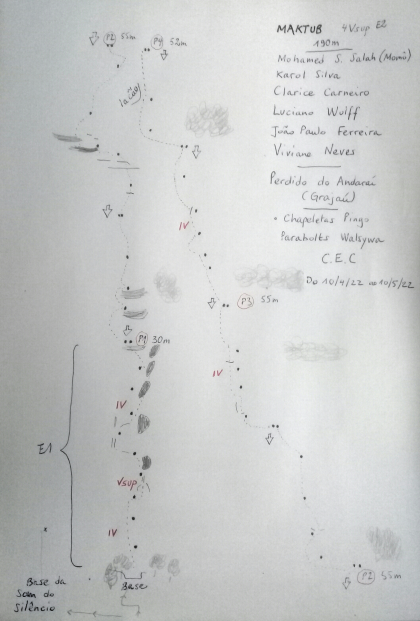 MAKTUB 4Vsup E2
190m
Mohamed S. Salah (Momô)
Karol Silva
Clarice Carneiro
Luciano Wolff
João Paulo Ferreira
Viviane Neves
Perdido do Andaraí
(Grajaú)
• Chapeletas Pingo
Parabolts Walsywa
C.E.C
De 10/4/22 ao 10/5/22
P2 55m
P4 52m
IV
P3 55m
P1 30m
IV
IV
E1
Vsup
IV
P2 55m
Base da
Som do
Silêncio
Base